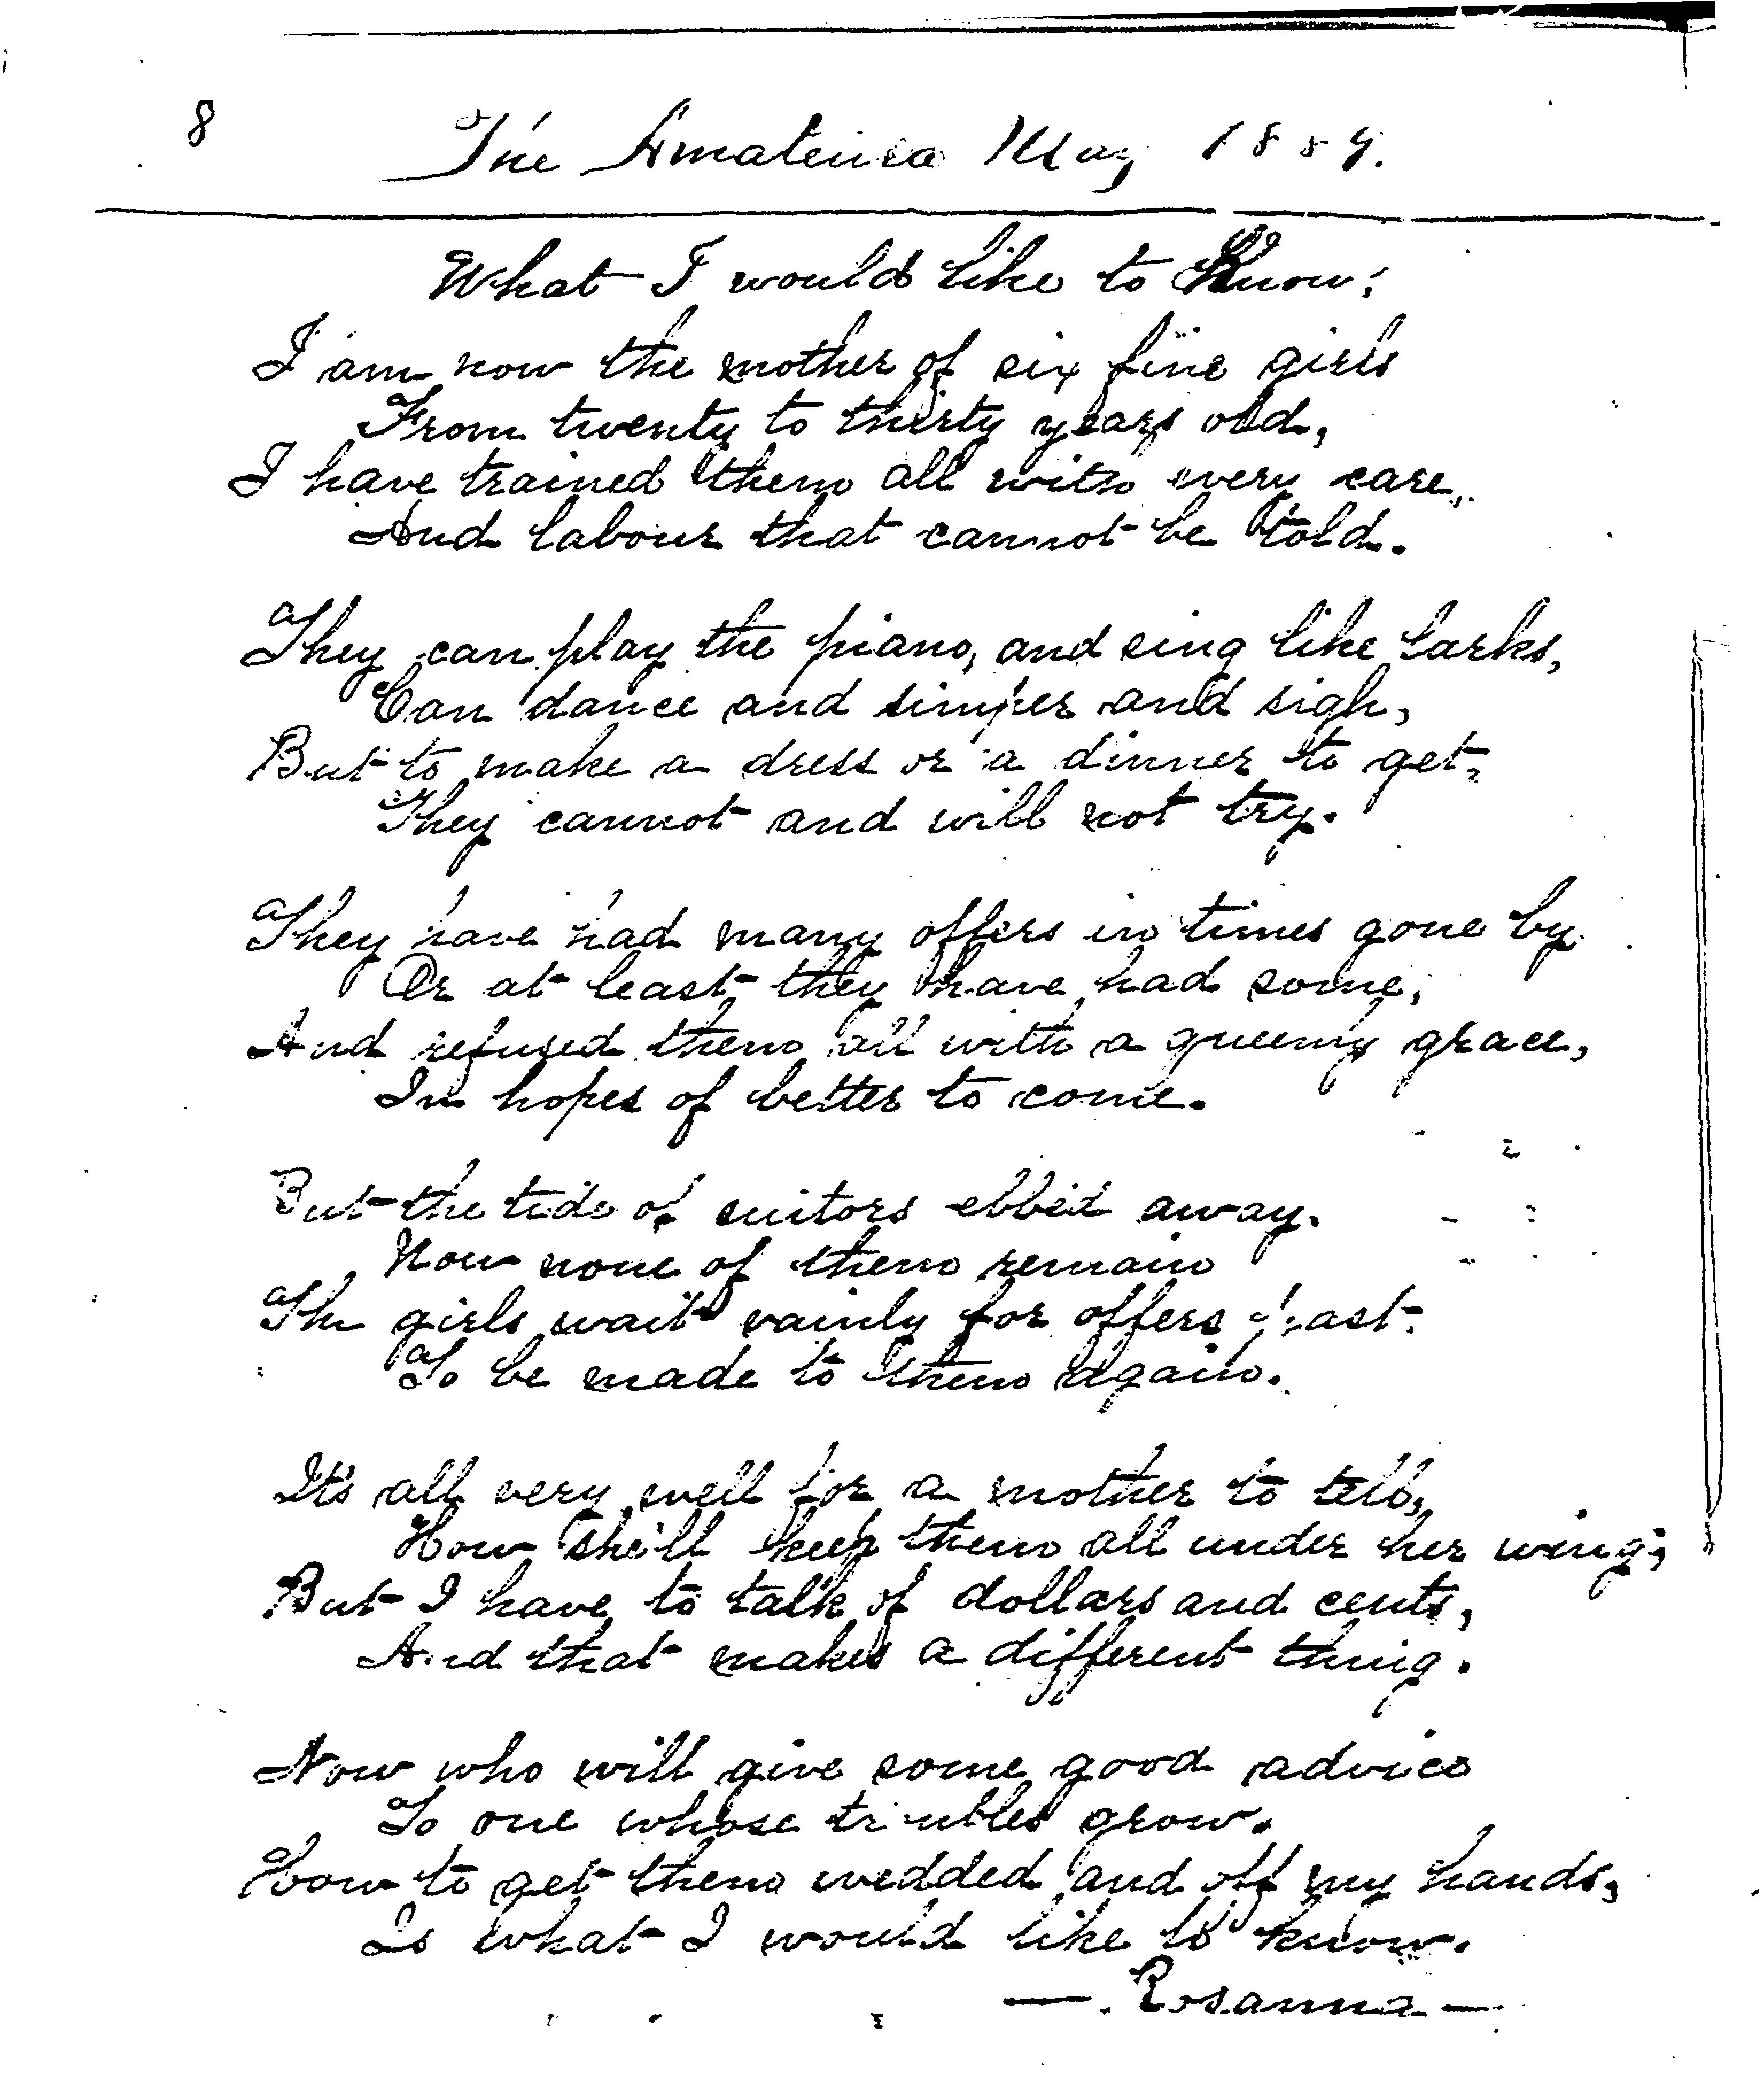 8
The Amateur May 1889.
What I would like to Know;
I am now the mother of six fine girls
From twenty to thirty years old,
I have trained them all with every care,
And labour that cannot be told.
They can play the piano, and sing like larks,
Can dance and simper and sigh,
But to make a dress or a dinner to get,
They cannot and will not try.
They have had many offers in times gone by
Or at least they have had some,
And refused them all with a queenly grace,
In hopes of better to come.
But the tide of suitors ebbed away.
Now none of them remain
The girls wait vainly for offers past
To be made to them again.
It's all very well for a mother to tell,
How she'll keep them all under her wing;
But I have to talk of dollars and cents,
And that makes a different thing.
Now who will give some good advice
To one whose troubles grow.
How to get them wedded and off my hands,
Is what I would like to know.
— Rosanna —